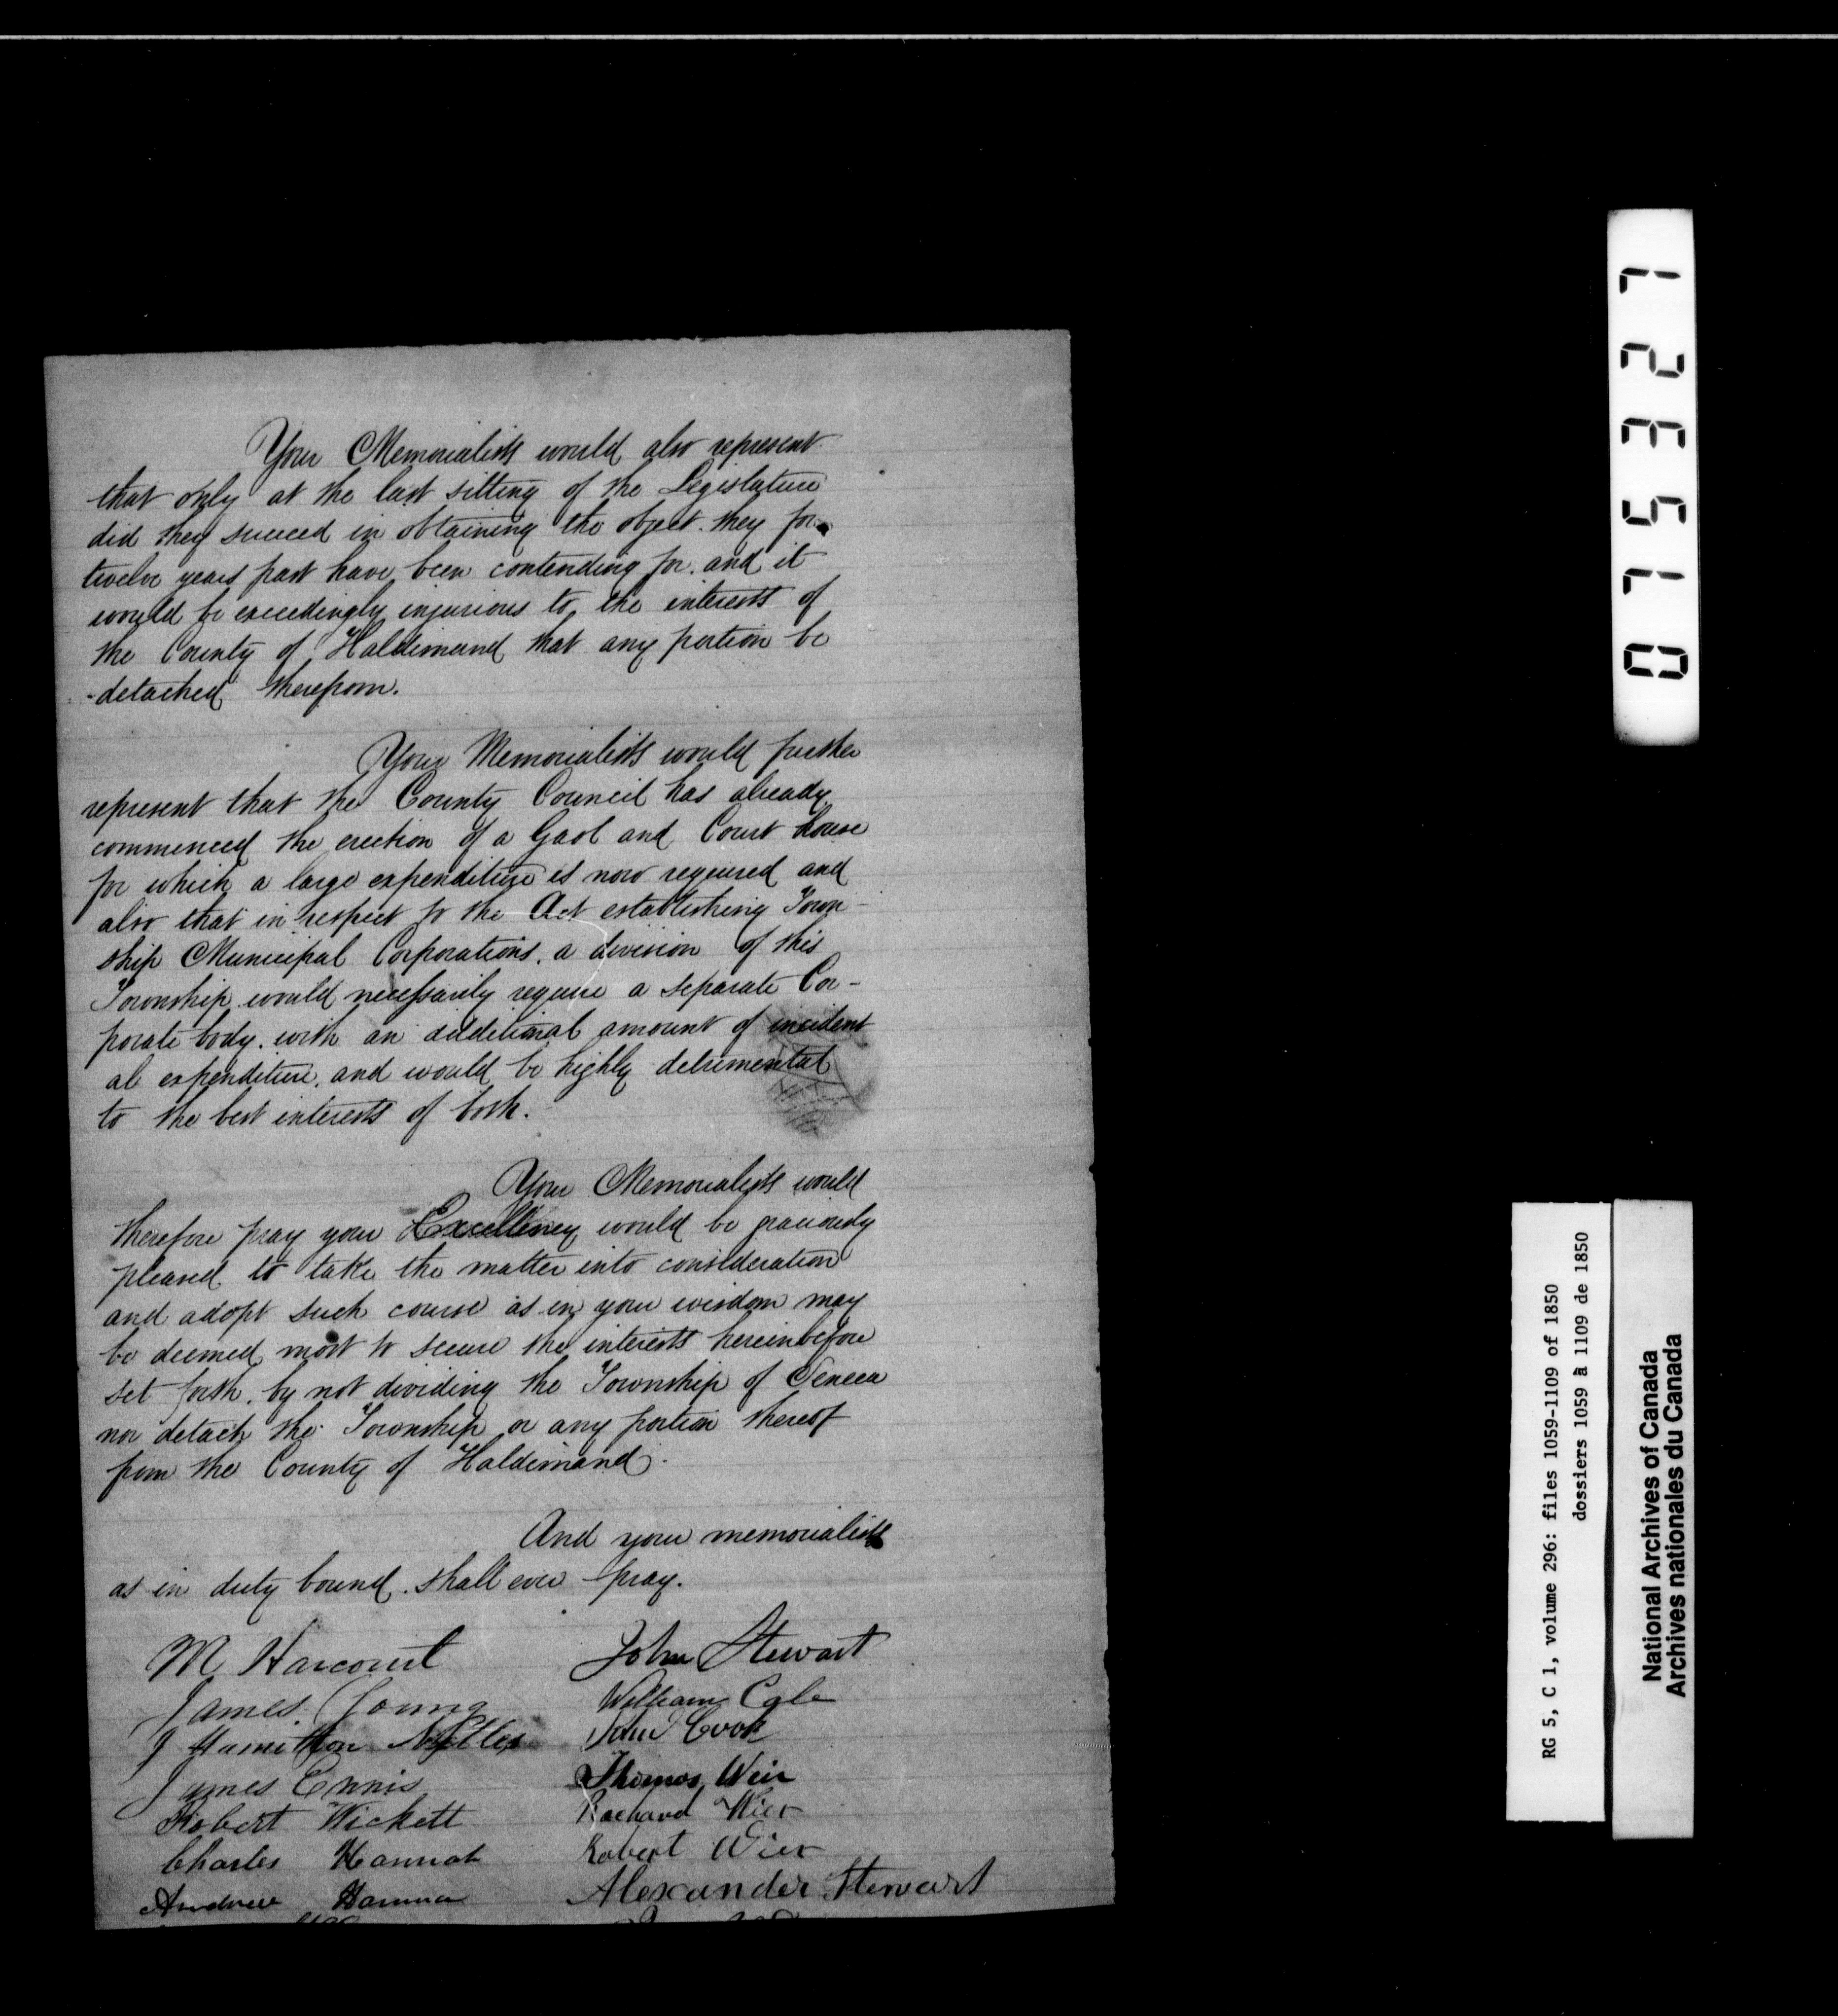 Your Memorialists would also represent
that only at the last sitting of the Legislature
did they succeed in obtaining the object they for
twelve years past have been contending for. and it
would be exceedingly injurious to the interests of
the County of Haldimand that any portion be
detached therefrom.
Your Memorialists would further
represent that the County Council has already
commenced the erection of a Gaol and Court house
for which a large expenditure is now required and
also that in respect to the Act establishing Town-
ship Municipal Corporations. a division of this
Township would necessarily require a separate Cor-
porate body. with an additional amount of incident
al expenditure. and would be highly detrimental
to the best interests of both.
Your Memorialists would
therefore pray your Excellency would be graciously
pleased to take the matter into consideration
and adopt such course as in your wisdom may
be deemed most to secure the interests hereinbefore
set forth. by not dividing the Township of Seneca
nor detach the Township or any portion thereof
from the County of Haldimand.
And your memorialists
as in duty bound. shall ever pray.
M Harcourt John Stewart
James Young William Cole
J Hamilton Nelles John Cook
James Ennis Thomas Weir
Robert Wickett Rachard Wier
Charles Hannah Robert Wier
Andrew Hanna Alexander Stewart
0 7 5 3 2 7
RG 5, C 1, volume 296: files 1059-1109 of 1850
dossiers 1059 à 1109 de 1850
National Archives of Canada
Archives nationales du Canada